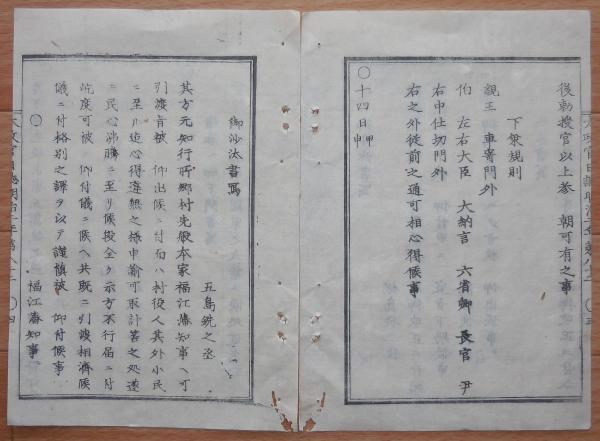 後勅授官以上参　朝可有之事
下乗規則
親王　車寄門外
伯　左右大臣　大納言　六省卿　長官　尹
右中仕切門外
右之外従前之通可相心得候事
〇十四日甲申
御沙汰書写
五島銑之丞
其方元知行所郷村先般本家福江藩知事ヘ可
引渡旨被　仰出候ニ付而ハ村役人其外小民
ニ至ル迄心得違無之様申諭可取計筈之処遂
ニ民心沸騰ニ至リ候段全ク示方不行届ニ付
屹度可被　仰付儀ニ候ヘ共既ニ引渡相済候
儀ニ付格別之譯ヲ以テ謹慎被　仰付候事
〇　福江藩知事